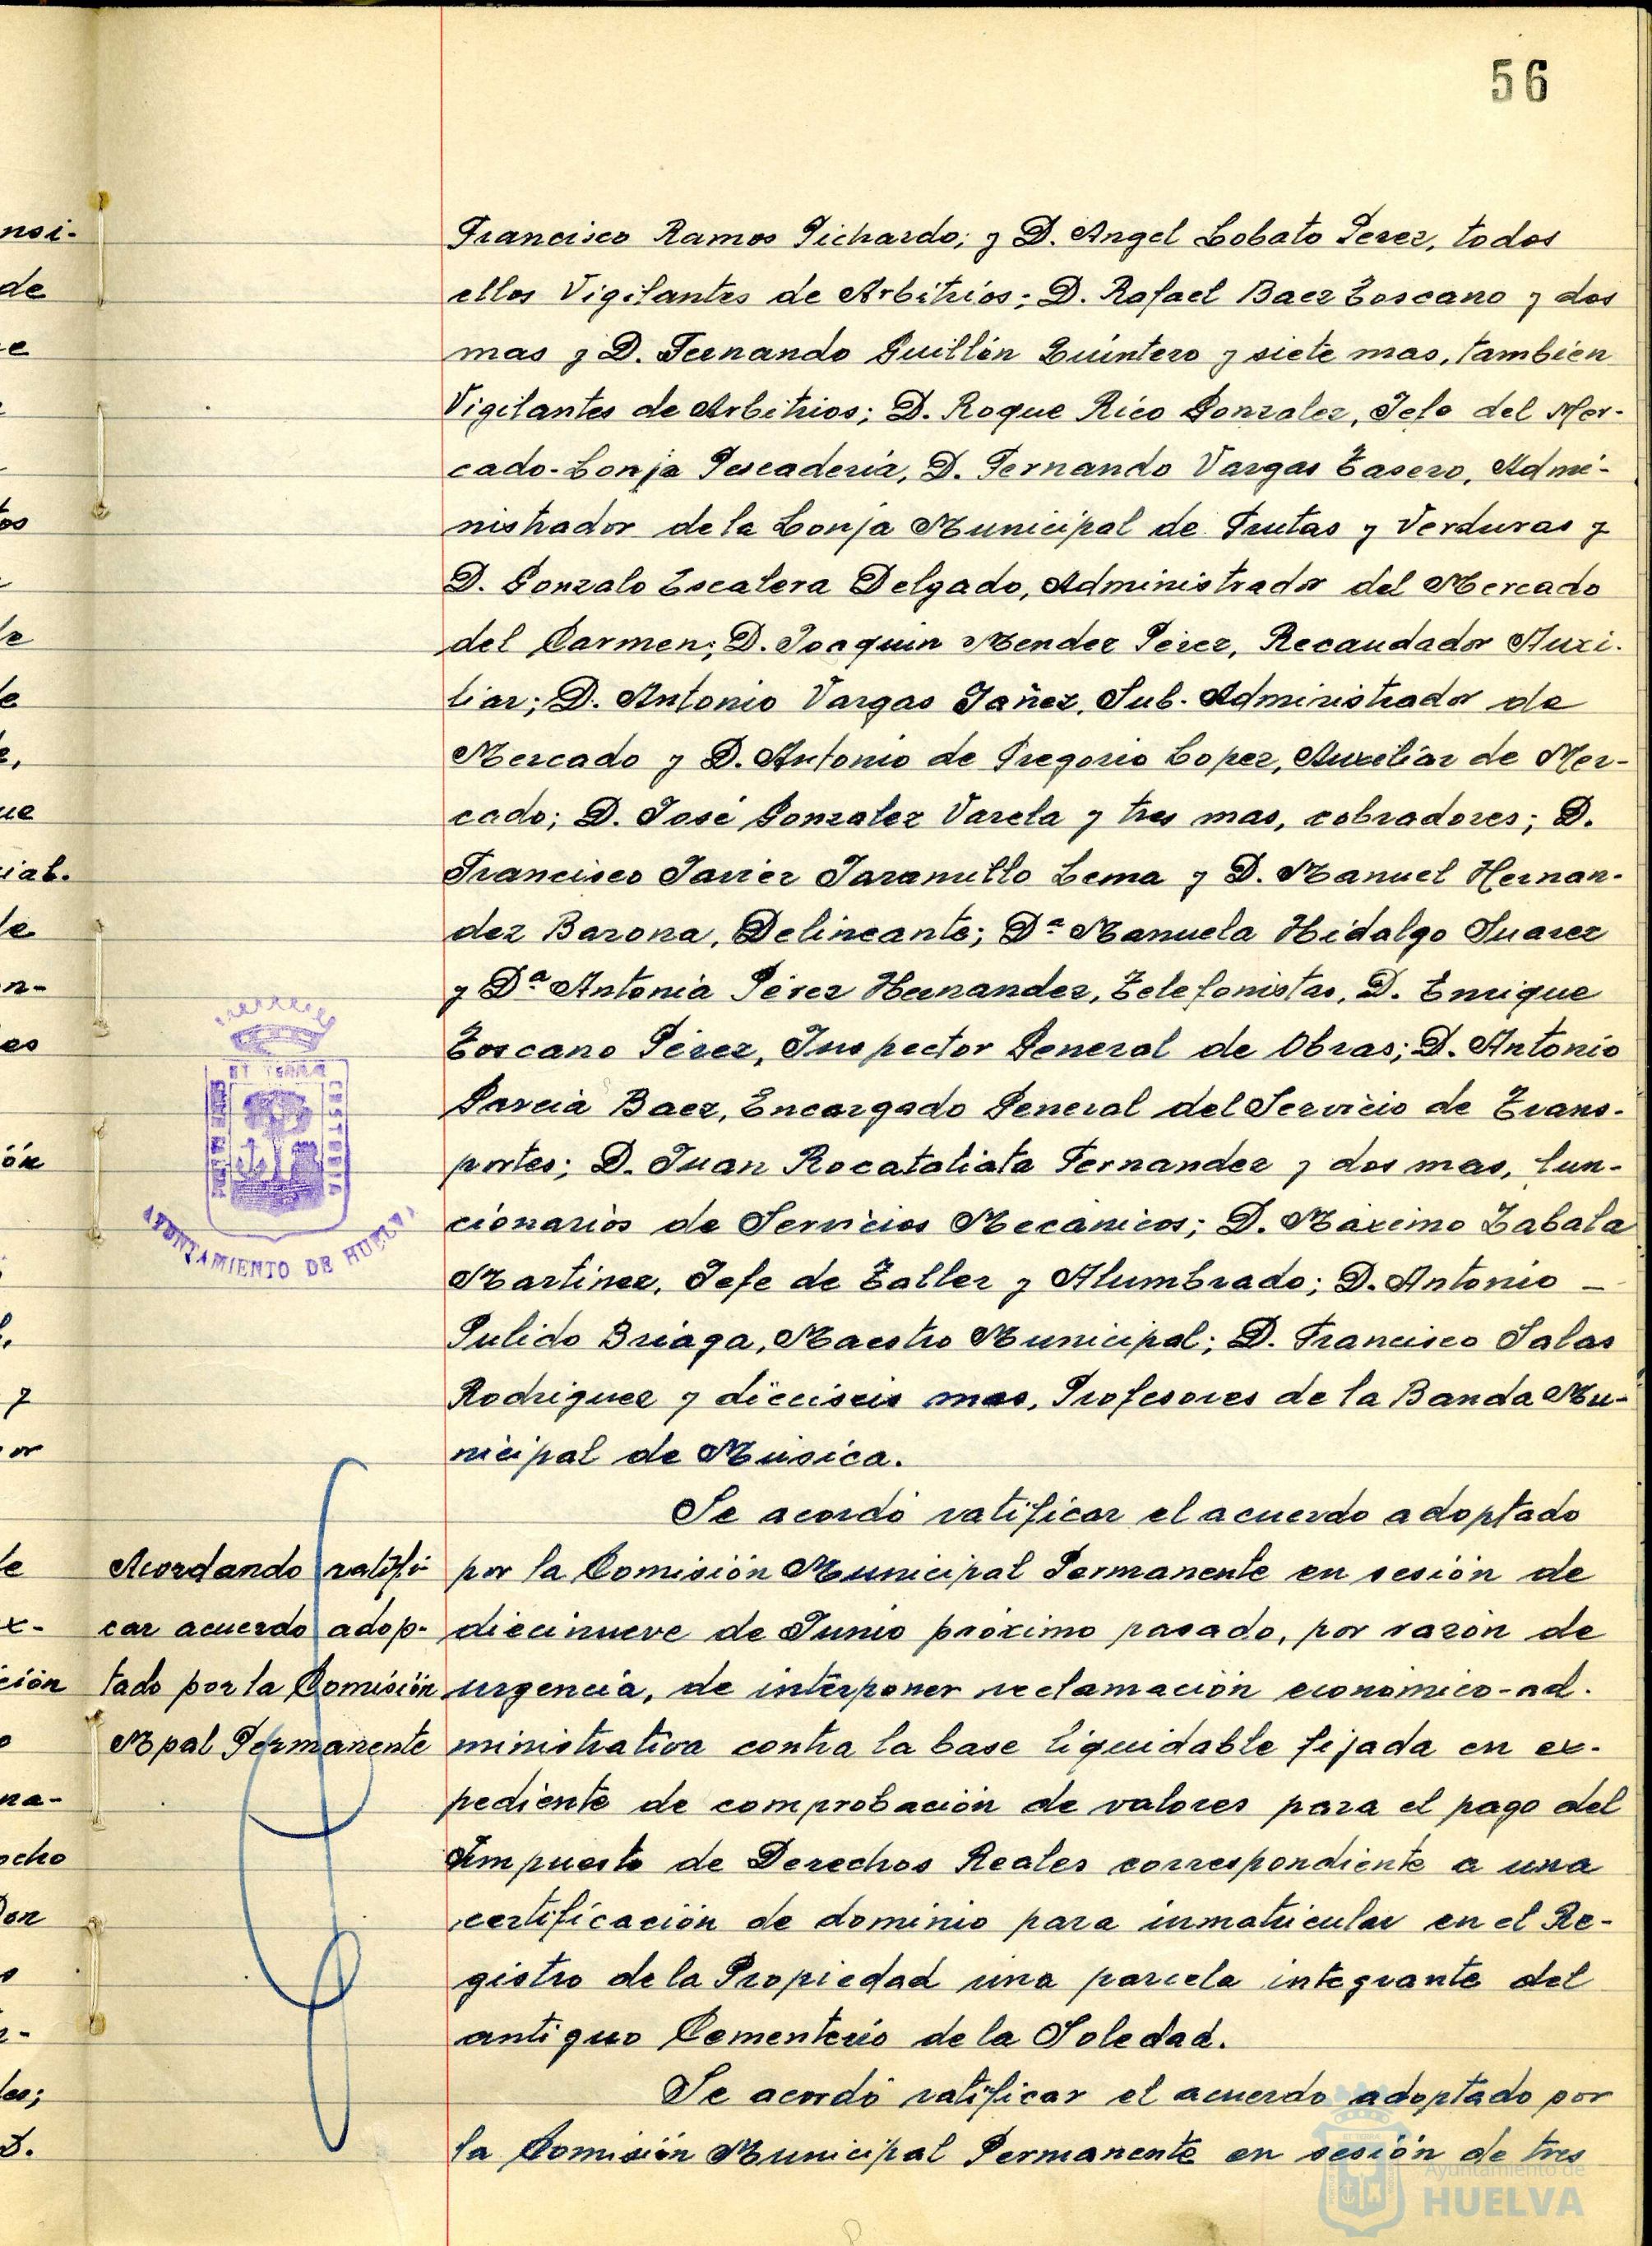 56
Francisco Ramos Pichardo; y D. Angel Lobato Perez, todos
ellos Vigilantes de Arbitrios; D. Rafael Baez Toscano y dos
mas y D. Fernando Guillén Quintero y siete mas, tambien
Vigilantes de Arbitrios; D. Roque Rico Gonzalez, Jefe del Mer-
cado-Lonja Pescaderia, D. Fernando Vargas Tasero, Admi-
nistrador de la Lonja Municipal de Frutas y Verduras y
D. Gonzalo Escalera Delgado, Administrador del Mercado
del Carmen; D. Joaquin Mendez Pérez, Recaudador Auxi-
liar; D. Antonio Vargas Yañez, Sub-Administrador de
Mercado y D. Antonio de Gregorio Lopez, Auxiliar de Mer-
cado; D. José Gonzalez Varela y tres mas, cobradores; D.
Francisco Javier Jaramillo Lema y D. Manuel Hernan-
dez Barona, Delineante; Dª Manuela Hidalgo Suarez
y Dª Antonia Pérez Hernandez, Telefonistas, D. Enrique
Toscano Pérez, Inspector General de Obras; D. Antonio
Garcia Baez, Encargado General del Servicio de Trans-
portes; D. Juan Rocataliata Fernandez y dos mas, fun-
cionarios de Servicios Mecánicos; D. Máximo Zabala
Martinez, Jefe de Taller y Alumbrado; D. Antonio -
Pulido Briaga, Maestro Municipal; D. Francisco Salas
Rodriguez y dieciseis mas, Profesores de la Banda Mu-
nicipal de Música.
Se acordó ratificar el acuerdo adoptado
por la Comisión Municipal Permanente en sesión de
diecinueve de Junio próximo pasado, por razón de
urgencia, de interponer reclamación economico-ad-
ministrativa contra la base liquidable fijada en ex-
pediente de comprobación de valores para el pago del
Impuesto de Derechos Reales correspondiente a una
certificación de dominio para inmatricular en el Re-
gistro de la Propiedad una parcela integrante del
antiguo Cementerio de la Soledad.
Se acordó ratificar el acuerdo adoptado por
la Comisión Municipal Permanente en sesión de tres
Acordando ratifi
car acuerdo adop-
tado por la Comisión
Mpal Permanente
AYUNTAMIENTO DE HUELVA
Ayuntamiento de
HUELVA